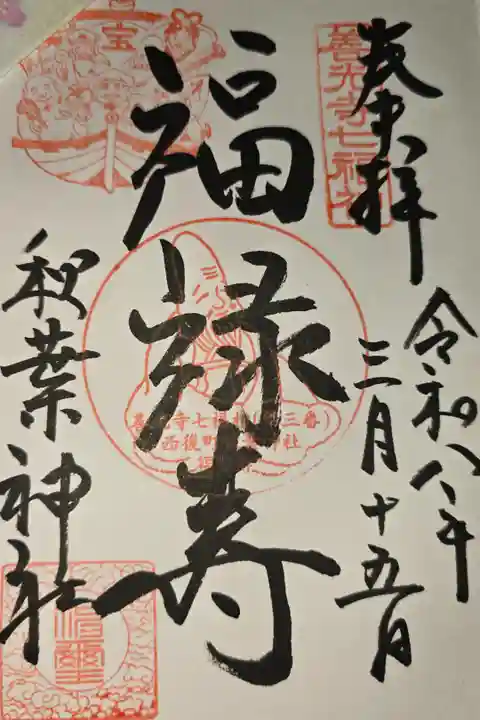 奉拝
善光寺七福神
令和八年
三月十五日
福禄寿
宝
善光寺七福神(第三番)
西後町秋葉神社
秋葉神社